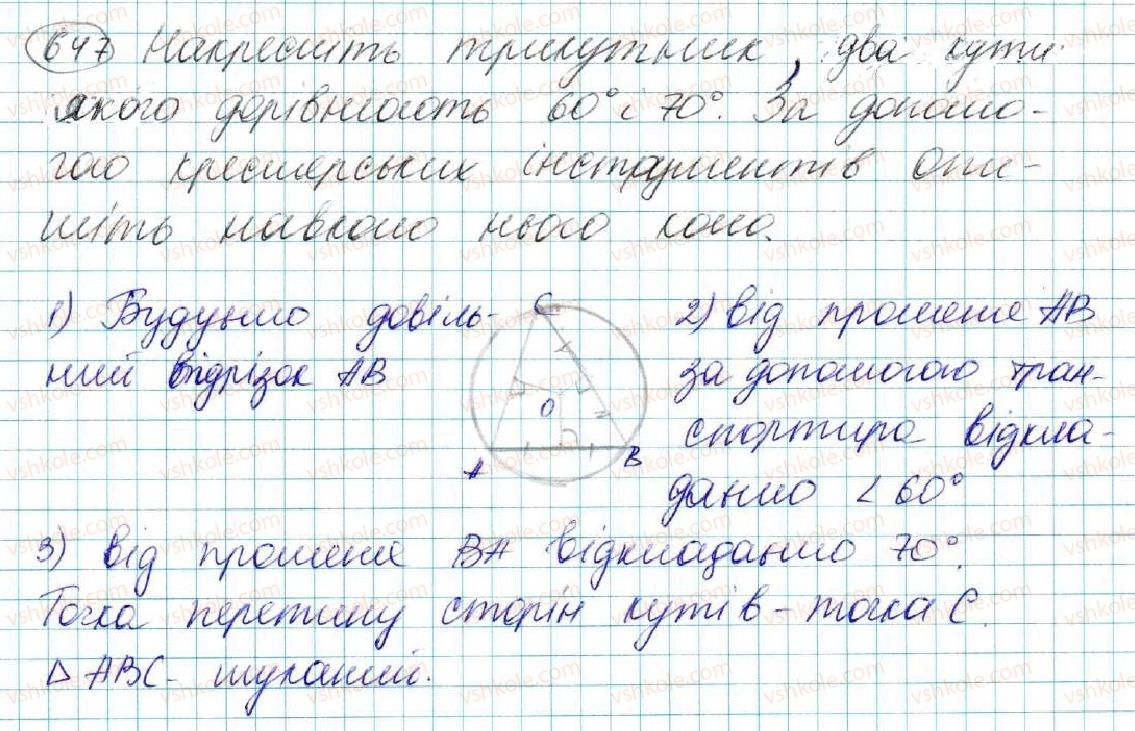 647 Накресліть трикутник, два кути
якого дорівнюють 60° і 70°. За допомо-
гою креслярських інструментів опи-
шіть навколо нього коло.
1) Будуємо довіль-
ний відрізок АВ
C
O
A
B
2) від променя АВ
за допомогою тран-
спортира відкла-
даємо < 60°
3) від променя ВА відкладаємо 70°.
Точка перетину сторін кутів - точка С.
Δ АВС - шуканий.
vshkole.com